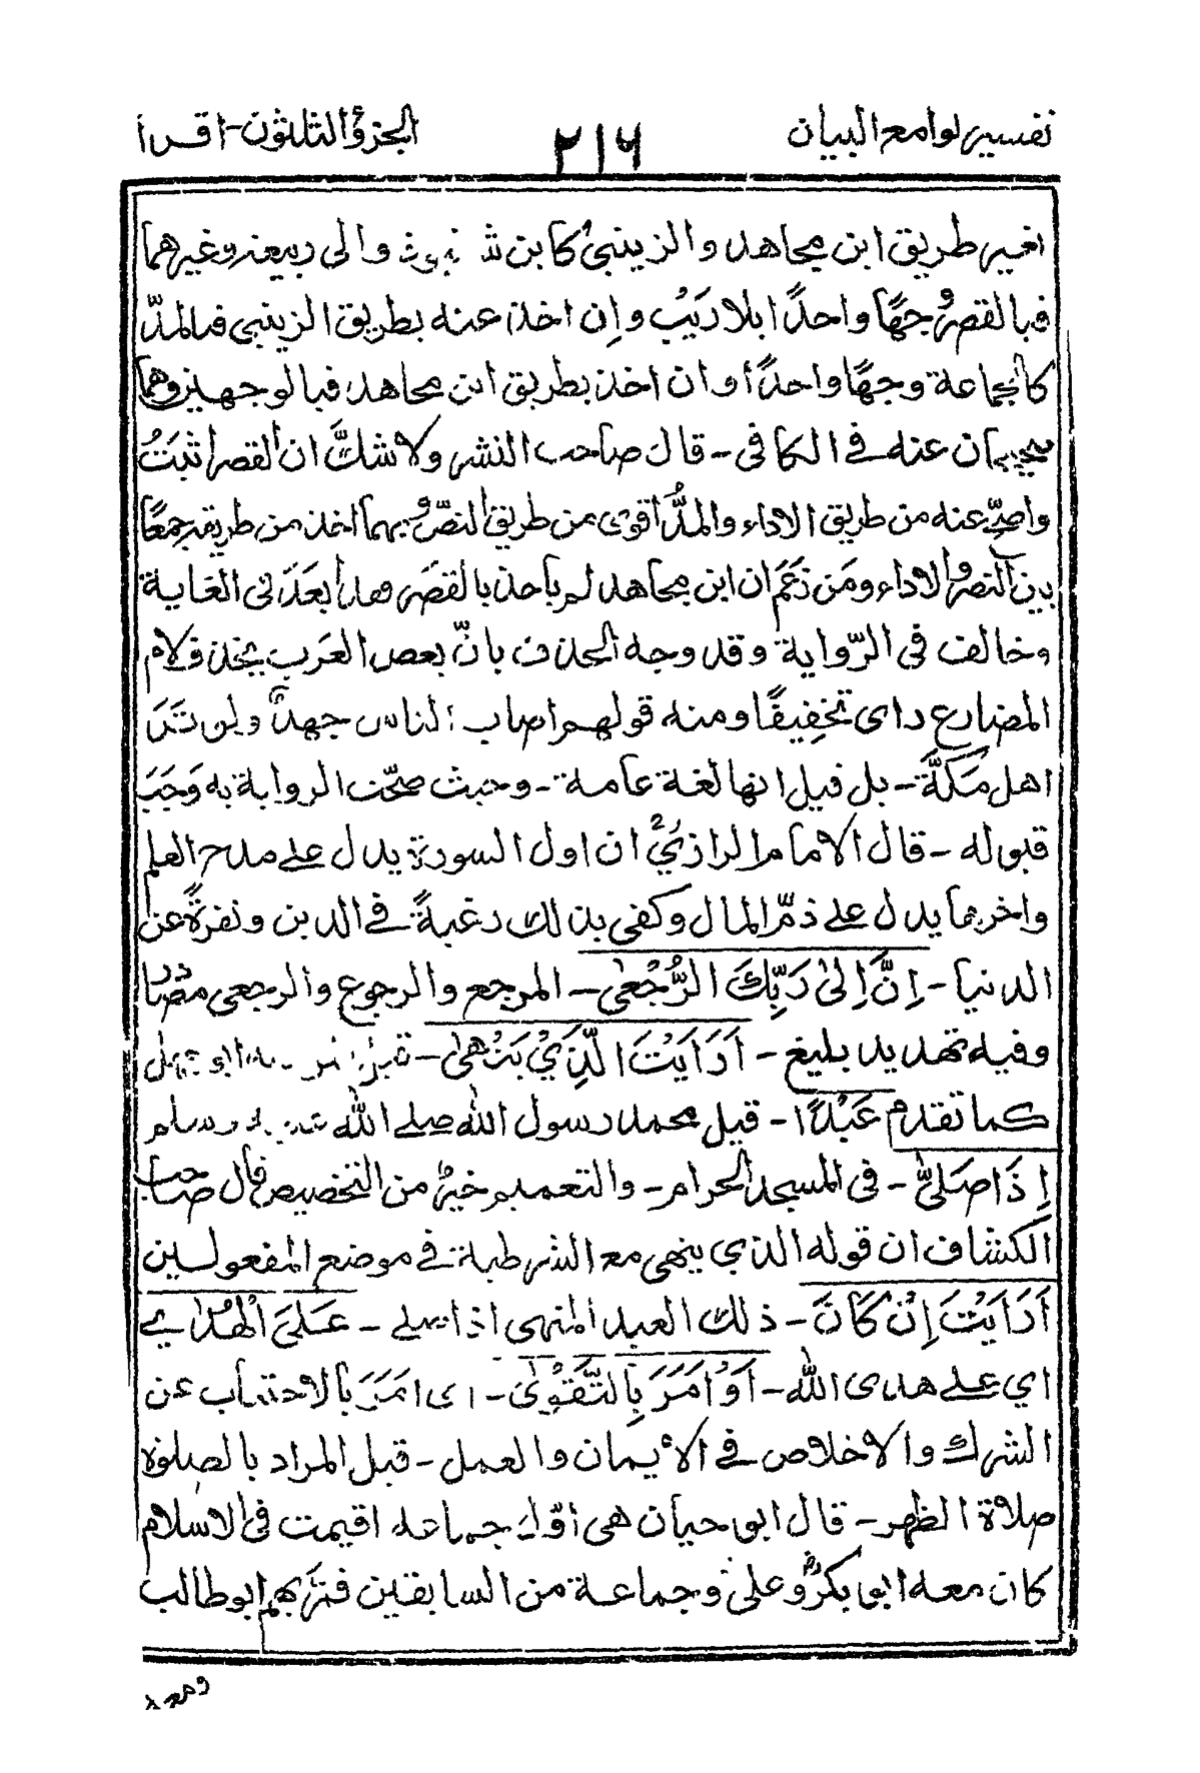 تفسير لوامع البيان
٢١٦
الجزؤ الثلثون - اقرا
بغير طريق ابن مجاهد والزينبي كابن شنبوذ وابي ربيعة وغيرهما
فبالقصر وجهًا واحدًا بلا ريب وان اخذ عنه بطريق الزينبي فبالمدّ
كالجماعة وجهًا واحدًا وان اخذ بطريق ابن مجاهد فبالوجهين وهما
صحيحان عنه في الكافي - قال صاحب النشر ولا شكَّ ان القصر اثبَتُ
واصحّ عنه من طريق الاداء والمدُّ أقوى من طريق النصّ وبهما اخذ من طريقه جمعًا
بين النص والاداء ومَن زَعَم ان ابن مجاهد لم ياخذ بالقصر فقد ابعَدَ في الغاية
وخالف في الرّواية وقد وجه الحذف بانّ بعض العَرب يحذف لام
المضارع رأى تخفِيفًا ومنه قولهم اصاب الناس جهدٌ ولن تَرَ
اهل مَكَّةَ - بل قيل انها لغة عامة - وحيث صحّت الرواية به وَجَبَ
قبوله - قال الامام الرازيُّ ان اول السورة يدل على مدح العلم
واخرها يدل على ذمّ المال وكفى بذلك رغبةً في الدين ونفرةً عن
الدنيا - اِنَّ اِلىٰ رَبِّكَ الرُّجْعىٰ - المرجع والرجوع والرجعى مصادر
وفيه تهديد بليغ - اَرَاَيْتَ الَّذِيْ يَنْهىٰ - ابو جهل
كما تقدم عَبْدًا - قيل محمد رسول الله صلى الله عليه وسلم
اِذَا صَلّىٰ - في المسجد الحرام - والتعميم خيرٌ من التخصيص قال صاحب
الكشاف ان قوله الذي ينهى مع الشرطية في موضع المفعولين
اَرَاَيْتَ اِنْ كَانَ - ذلك العبد المنهى اذا يصلے - عَلَى الْهُدٰىے
اي علے هدى الله - اَوْ اَمَرَ بِالتَّقْوٰى - اى اَمَرَ بالاجتناب عن
الشرك والاخلاص في الايمان والعمل - قيل المراد بالصلوة
صلاة الظهر - قال ابو حيان هي اوّل جماعة اقيمت في الاسلام
كان معه ابو بكرؓ وعليؓ وجماعة من السابقين فمرّ بهم ابو طالب
ومعه